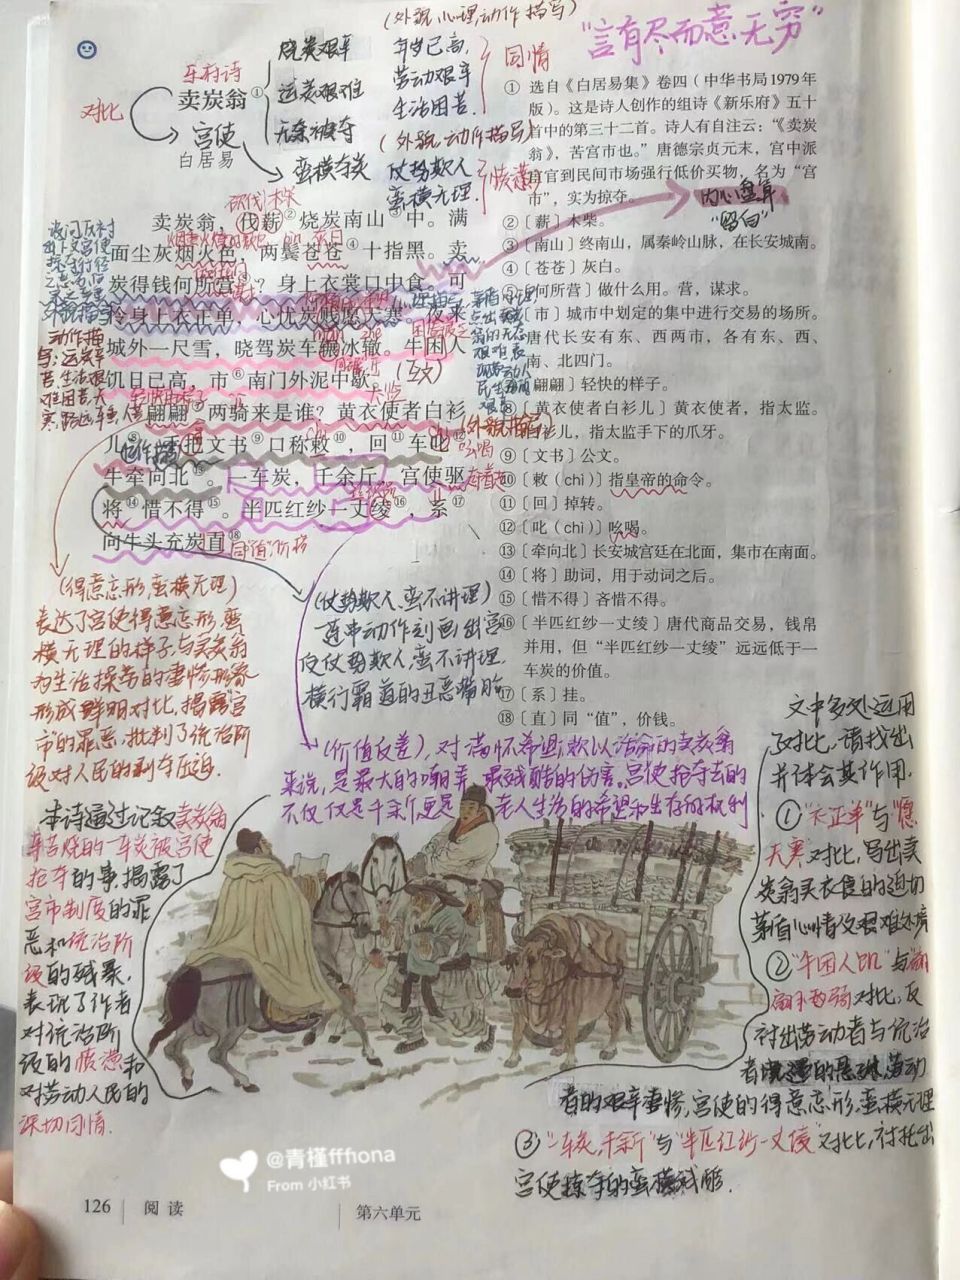 (外貌心理动作描写)
"言有尽而意无穷"
乐府诗
卖炭翁①
对比
宫使
白居易
烧炭艰辛
运炭艰难
无奈被夺
蛮横夺炭
年岁已高,
劳动艰辛
生活困苦.
同情
(外貌动作描写)
仗势欺人
蛮横无理.
愤懑
内心盘算
"留白"
卖炭翁,伐薪②烧炭南山③中。满
面尘灰烟火色,两鬓苍苍④十指黑。卖
炭得钱何所营⑤?身上衣裳口中食。可
怜身上衣正单,心忧炭贱愿天寒。夜来
城外一尺雪,晓驾炭车辗冰辙。牛困人
饥日已高,市⑥南门外泥中歇。
翩翩⑦两骑来是谁?黄衣使者白衫
儿⑧。手把文书⑨口称敕⑩,回⑪车叱⑫
牛牵向北⑬。一车炭,千余斤,宫使驱
将⑭惜不得⑮。半匹红纱一丈绫⑯,系⑰
向牛头充炭直⑱
(互文)
同"值"价格
①选自《白居易集》卷四(中华书局1979年
版)。这是诗人创作的组诗《新乐府》五十
首中的第三十二首。诗人有自注云:“《卖炭
翁》,苦宫市也。”唐德宗贞元末,宫中派
宦官到民间市场强行低价买物,名为“宫
市”,实为掠夺。
②〔薪〕木柴。
③〔南山〕终南山,属秦岭山脉,在长安城南。
④〔苍苍〕灰白。
⑤〔何所营〕做什么用。营,谋求。
⑥〔市〕城市中划定的集中进行交易的场所。
唐代长安有东、西两市,各有东、西、
南、北四门。
⑦〔翩翩〕轻快的样子。
⑧〔黄衣使者白衫儿〕黄衣使者,指太监。
白衫儿,指太监手下的爪牙。
⑨〔文书〕公文。
⑩〔敕(chì)〕指皇帝的命令。
⑪〔回〕掉转。
⑫〔叱(chì)〕吆喝。
⑬〔牵向北〕长安城宫廷在北面,集市在南面。
⑭〔将〕助词,用于动词之后。
⑮〔惜不得〕吝惜不得。
⑯〔半匹红纱一丈绫〕唐代商品交易,钱帛
并用,但“半匹红纱一丈绫”远远低于一
车炭的价值。
⑰〔系〕挂。
⑱〔直〕同“值”,价钱。
(得意忘形,蛮横无理)
表达了宫使得意忘形,蛮
横无理的样子,与卖炭翁
为生活操劳的凄惨形象
形成鲜明对比,揭露"宫
市"的罪恶,批判了统治阶
级对人民的剥夺压迫.
(仗势欺人,蛮不讲理)
连串动作刻画出宫
使仗势欺人,蛮不讲理,
横行霸道的丑恶嘴脸
(价值反差),对满怀希望,赖以活命的卖炭翁
来说,是最大的嘲弄,最残酷的伤害,宫使抢夺去的
不仅仅是千余斤更是 老人生活的希望和生存的权利
本诗通过记叙卖炭翁
辛苦烧的一车炭被宫使
抢夺的事,揭露了
宫市制度的罪
恶和统治阶
级的残暴,
表现了作者
对统治阶
级的愤懑和
对劳动人民的
深切同情.
文中多处运用
了对比,请找出
并体会其作用.
①"衣正单"与"愿
天寒"对比,写出卖
炭翁买衣食的迫切
矛盾心情及艰难处境
②"牛困人饥"与"翩
翩两骑"对比,反
衬出劳动者与统治
者的艰辛凄惨,宫使的得意忘形,蛮横无理
③"一车炭,千余斤"与"半匹红纱一丈绫"对比,衬托出
宫使掠夺的蛮横残酷.
@青槿fffiona
From 小红书
126 阅读 第六单元